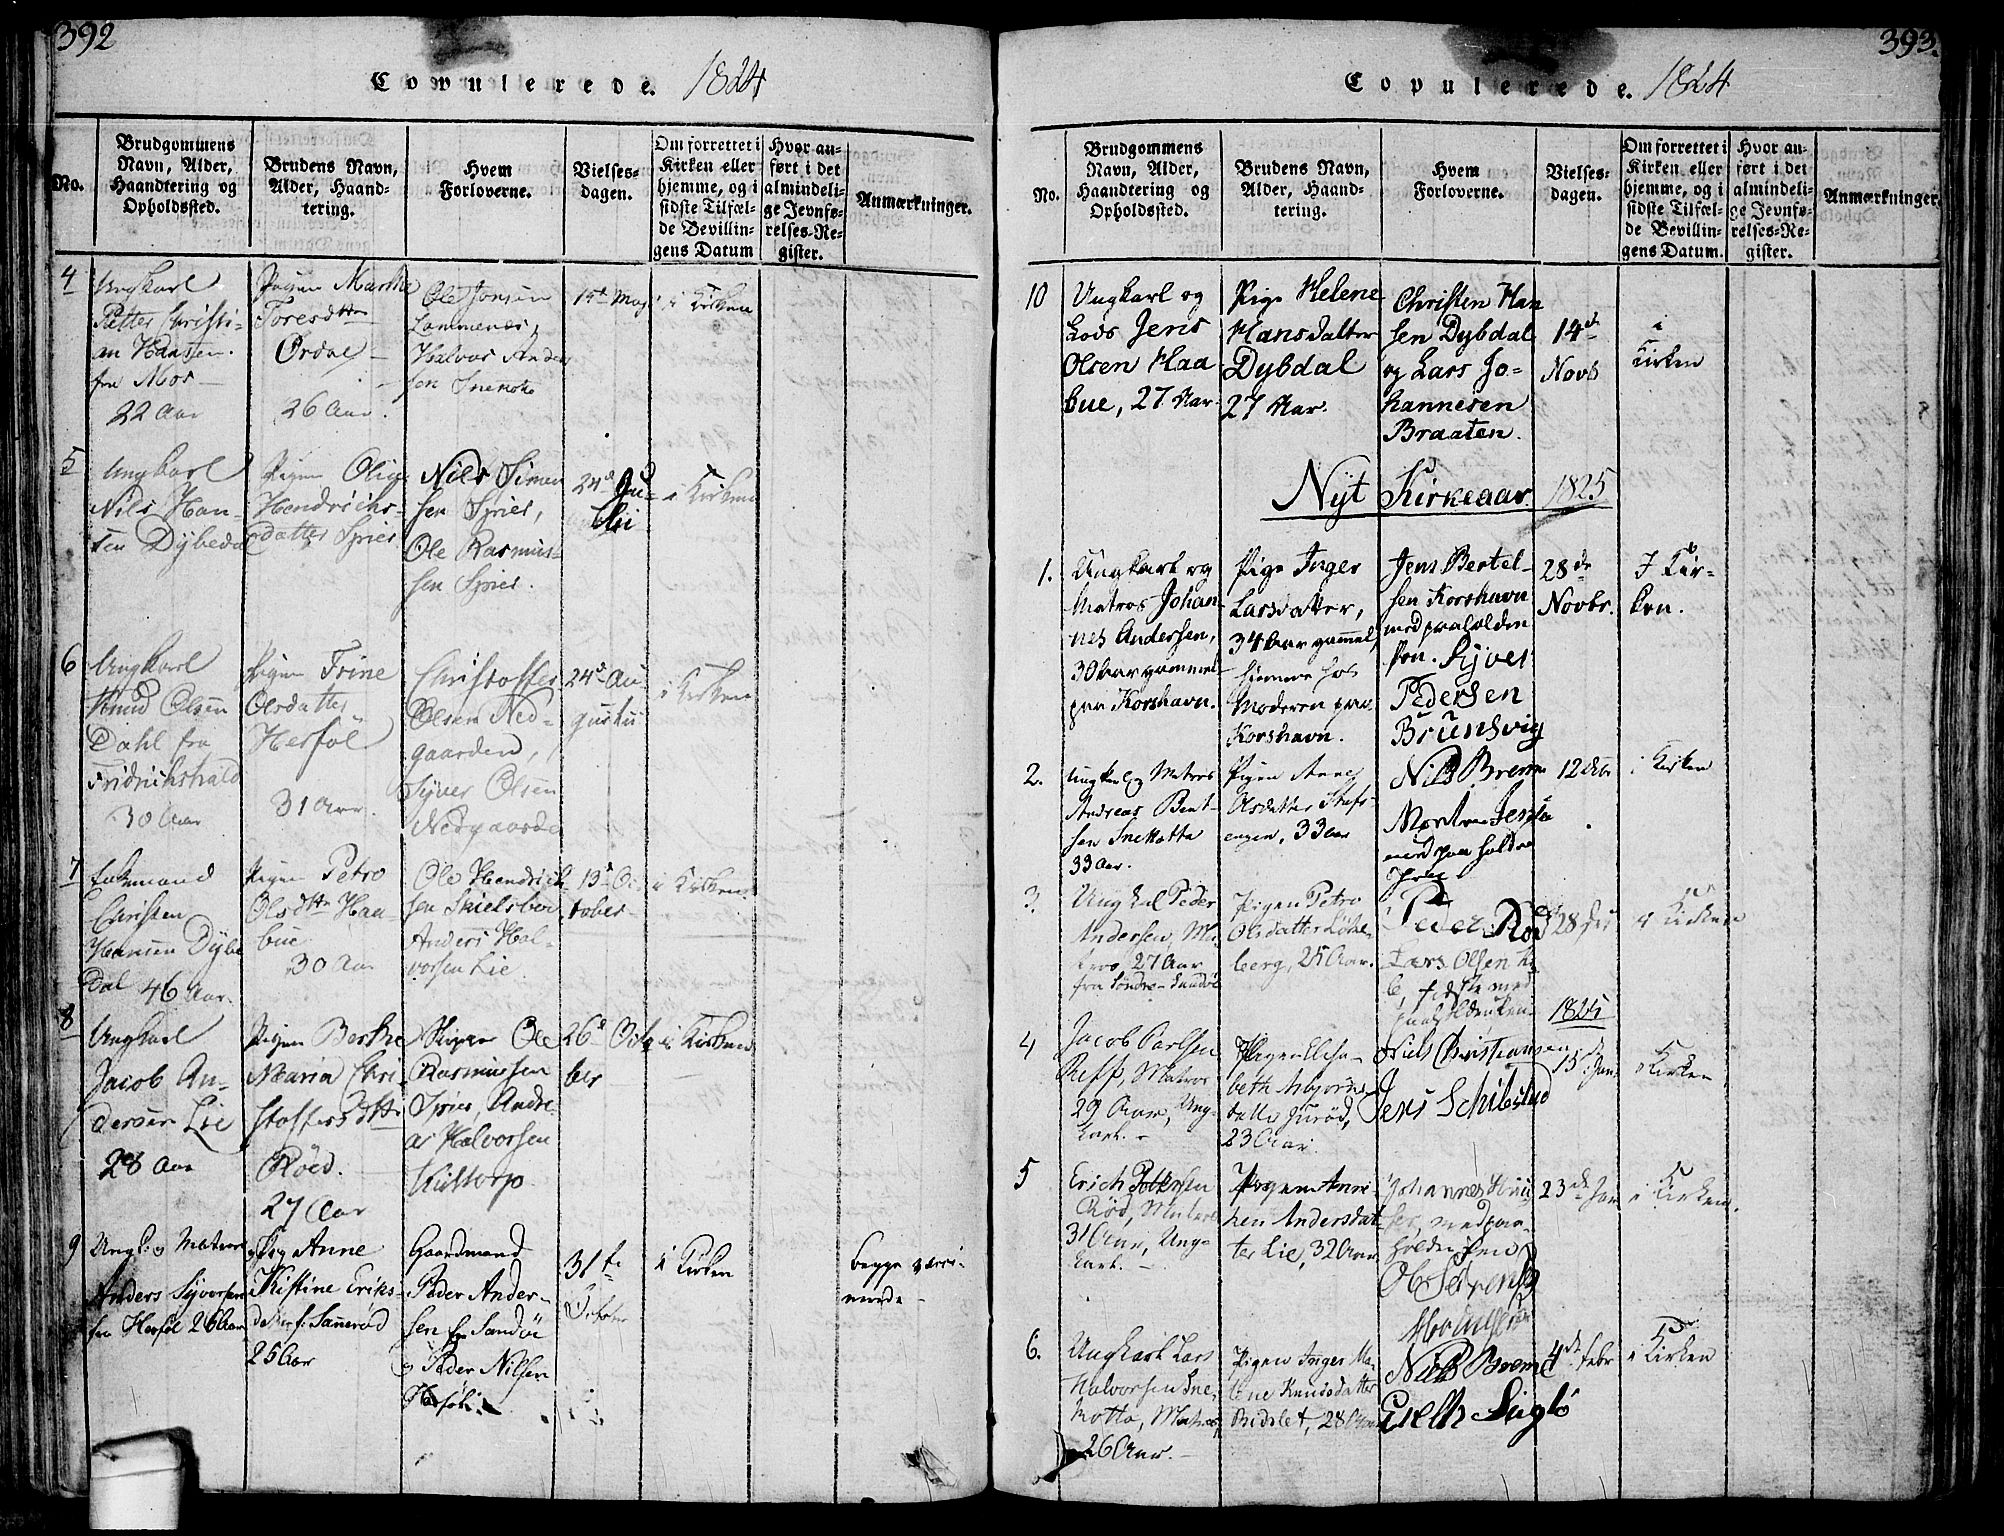 392
Copulerede. 1824
No.
Brudgommens
Navn, Alder,
Haandtering og
Opholdssted.
Brudens Navn,
Alder, Haand-
tering.
Hvem
Forloverne.
Vielses-
dagen.
Om forrettet i
Kirken eller
hjemme, og i
sidste Tilfæl-
de Bevillin-
gens Datum
Hvor an-
ført i det
almindeli-
ge Jevnfø-
relses-Re-
gister.
Anmærkninger.
4
Ungkarl
Petter Christi-
an Hansen
fra Mos
22 Aar
Pigen Marthe
Toresdttr
Ordal
26 Aar.
Ole Jonsen
Halvor Ander
sen
15d May
i Kirken
5
Ungkarl
Nils Han-
sen Dybedal
Pigen
Hendrichs-
datter Spies
Nils Simen
sen Spies,
Ole Rasmus-
sen Spies.
24d Ju-
lii
i Kirken
6
Ungkarl
Knud Olsen
Dahl fra
Fridrichshald
30 Aar
Pigen Trine
Olsdatter
Herföl
31 Aar.
Christoffer
Olsen Ned-
gaarden,
Syver Olsen
Nedgaarde
24d Au-
gusti
i Kirken
7
Enkemand
Christen
Hansen Dybe
dal 46 Aar.
Pigen Petro
Olsdttr Haa
bue
30 Aar
Ole Hendrich
sen Skielsboe
Anders Hal-
vorsen Lie
13d Oc
tober
i Kirken
8
Ungkarl
Jacob An-
dersen Lie
28 Aar
Pigen Berthe
Maria Chri-
stoffersdttr
Röed.
27 Aar
Skipper Ole
Rasmussen
Spies, Andre
as Halvorsen
26d Octo
ber
i Kirken
9
Ungk: og Matros
Anders Syvorsen
fra Herföl 26 Aar
Pig Anne
Kristine Eriks-
datter f. Sannerød
25 Aar
Gaardmand
Peder Ander-
sen fra Sandöe
og Peder Nilsen
Herföl
31te
October
i Kirken
begge vacci-
nerede
393.
Copulerede. 1824
No.
Brudgommens
Navn, Alder,
Haandtering og
Opholdssted.
Brudens Navn,
Alder, Haand-
tering.
Hvem
Forloverne.
Vielses-
dagen.
Om forrettet i
Kirken eller
hjemme, og i
sidste Tilfæl-
de Bevillin-
gens Datum.
Hvor an-
ført i det
almindeli-
ge Jevnfø-
relses-Re-
gister.
Anmærkninger.
10
Ungkarl og
Lods Jens
Olsen Haa
bue, 27 Aar
Pige Helene
Hansdatter
Dybdal
27 Aar.
Christen Han
sen Dybdal
og Lars Jo-
hannesen
Braaten.
14de
Novb
i
Kirken
Nyt Kirkeaar 1825
1.
Ungkarl og
Matros Johan
nes Andersen,
30 Aar gammel
paa Korshavn.
Pige Inger
Larsdatter,
34 Aar gammel,
hjemme hos
Moderen paa
Korshavn.
Jens Bertel-
sen Korshavn
med paaholden
Pen. Syver
Pedersen
Brunsvig
28de
Novbr.
I Kir-
ken.
2.
Ungkarl og Matros
Andreas Bent-
sen Snekotta
33 Aar.
Pigen Anne
Olsdatter Stafs-
engen, 33 aar
Nils Brem
Morten Jensen
med paaholden
12 Decb
i Kirken
3.
Ungkarl Peder
Andersen, Ma-
tros, 27 Aar
fra Söndre-Sandöe
Pigen Petro
Olsdatter Løke-
berg, 25 Aar.
Peder Röd
Lars Olsen
paaholden pen
28 Dec
i Kirken
1825
4
Jacob Carlsen
Reff, Matros
29 Aar, Ung-
karl.
Pigen Elisa-
beth Asbjørns-
datter Jurød,
23 Aar
Niels Christiansen
Jens Schibstad
15de Jan
i Kirken
5
Erich Petersen
Röd, Matros
31 Aar, Ung-
karl.
Pigen Anne
hen Andersdat-
ter Lie, 32 Aar
Johannes
med paa-
holden pen
23de Jan
i Kirken.
6.
Ungkarl Lars
Halvorsen Sne-
kotta, Matros,
26 Aar.
Pigen Inger Ma-
lene Knudsdatter
Bødslet, 28 Aar
Niels Brem
4de Febr
i Kirken